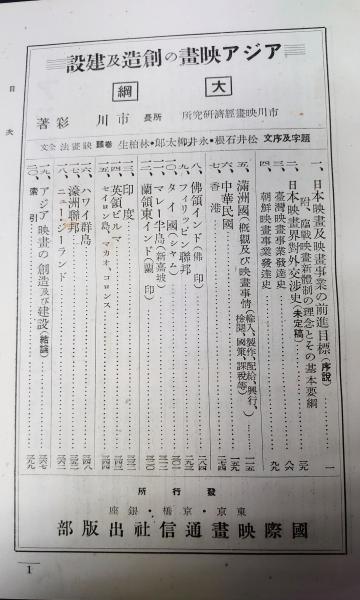 アジア映畫の創造及建設
大綱
市川映畫經濟研究所 所長 市川 彩 著
題字及序文 松井石根・永井柳太郎・林柏生 卷頭 映畫法全文
一、日本映畫及映畫事業の前進目標（序說） 一
附、臨戰映畫新體制の理念とその基本要綱 三九
二、日本映畫界對外交涉史（未定稿） 八六
三、臺灣映畫事業發達史
四、朝鮮映畫事業發達史 九九
五、滿洲國（概觀及び映畫事情）（輸入、製作、配給、興行、檢閱、國策、課稅等）
六、中華民國
七、香港
八、佛領インド（佛印）
九、フィリッピン聯邦
一〇、タイ國（シャム）
一一、マレー半島（新嘉坡）
一二、蘭領東インド（蘭印）
一三、印度
一四、英領ビルマ
一五、セイロン島、マカオ、コロンス
一六、ハワイ群島
一七、濠洲聯邦
一八、ニュー・ジーランド
一九、アジア映畫の創造及び建設（結論）
二〇、索引
發行所
東京・京橋・銀座
國際映畫通信社出版部
目次
1